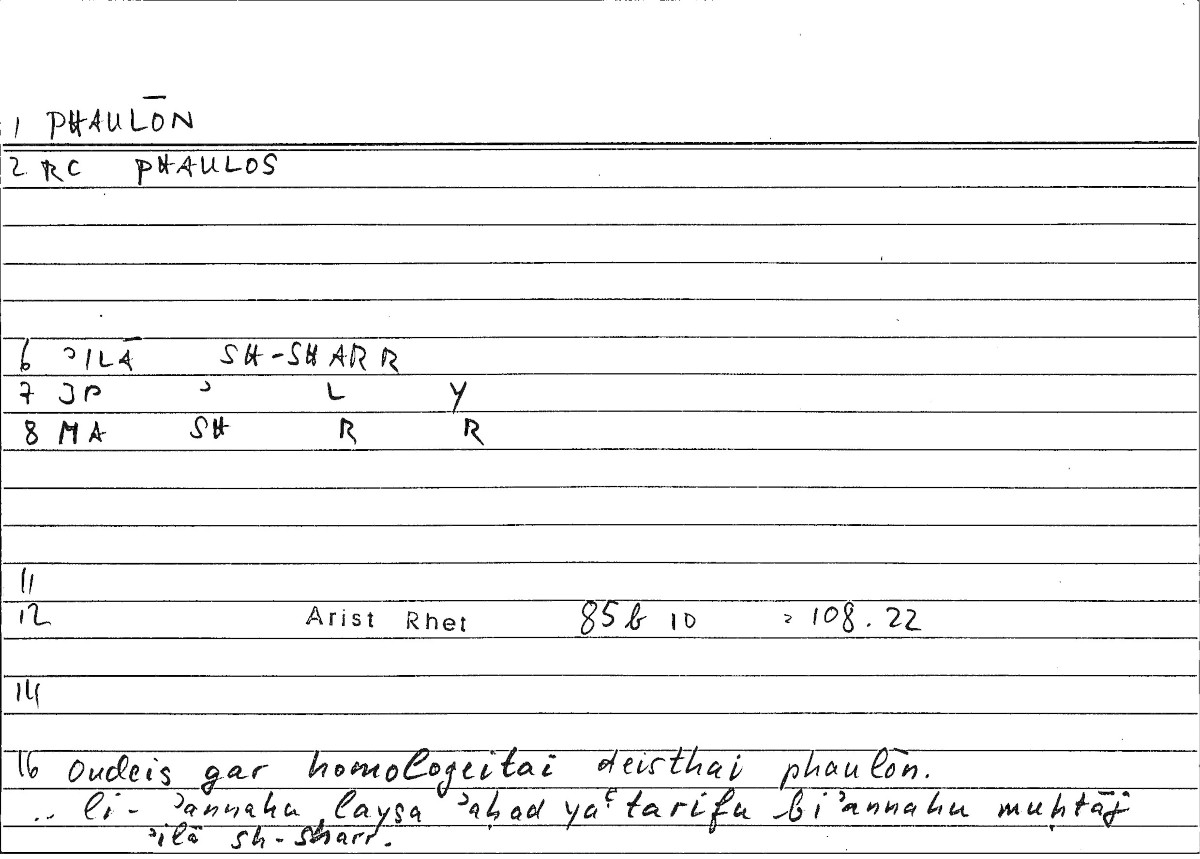 1 PHAULŌN
2 RC PHAULOS
6 ʾILĀ SH-SHARR
7 JP ʾ L Y
8 MA SH R R
11
12 Arist Rhet 85b 10 = 108.22
14
16 Oudeis gar homologeitai deisthai phaulōn.
.. li-ʾannahu laysa ʾaḥad yaʿtarifu biʾannahu muḥtāǧ
ʾilā sh-sharr.